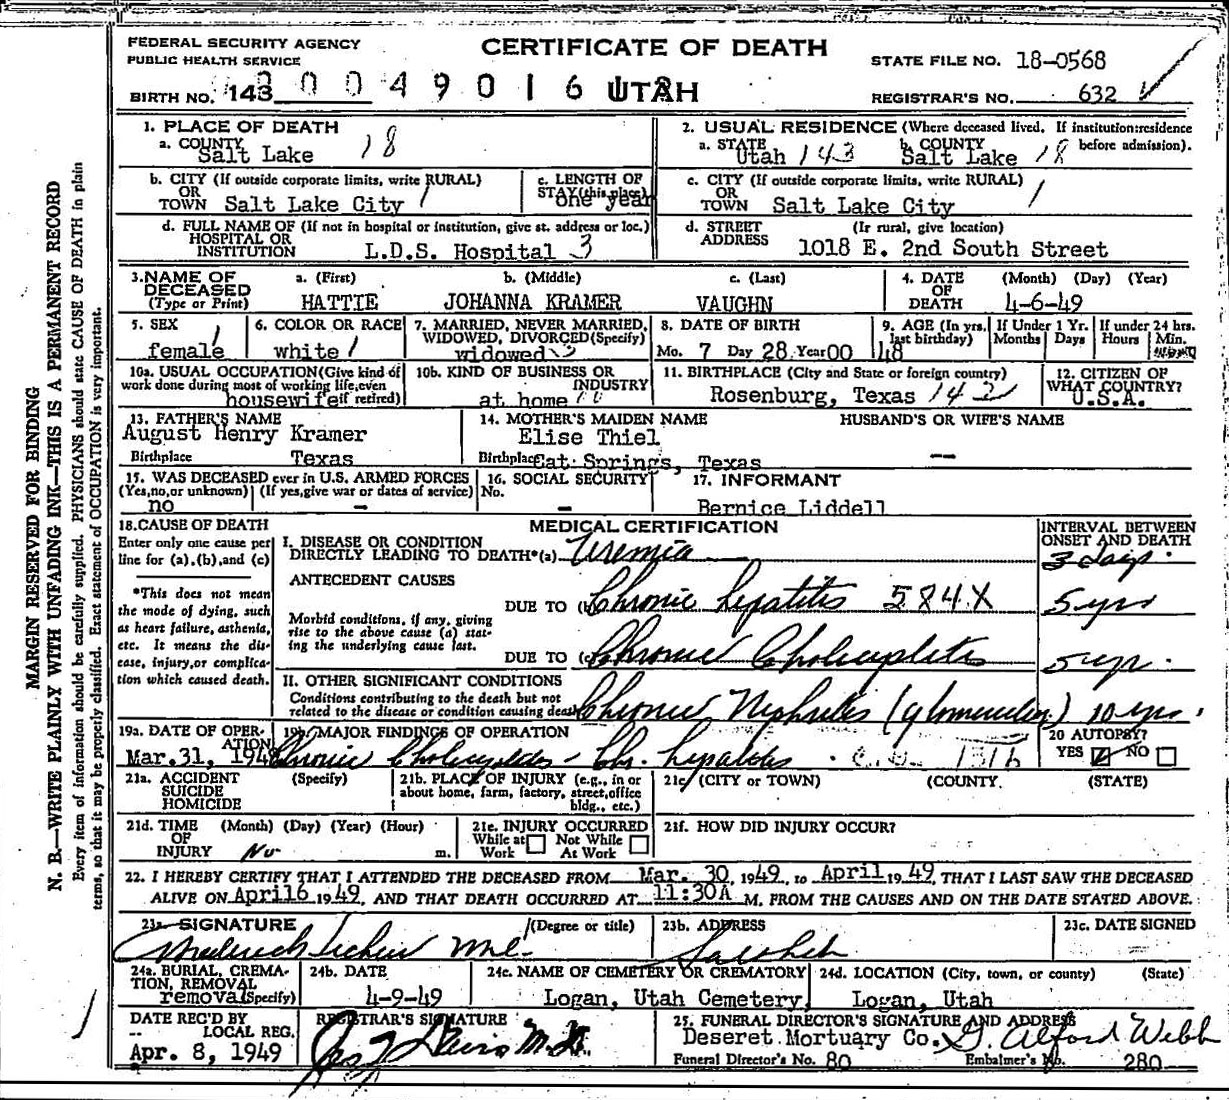 FEDERAL SECURITY AGENCY
PUBLIC HEALTH SERVICE
CERTIFICATE OF DEATH
STATE FILE NO. 18-0568
BIRTH NO. 143 0 0 4 9 0 1 6 UTAH
REGISTRAR'S NO. 632
MARGIN RESERVED FOR BINDING
N. B.—WRITE PLAINLY WITH UNFADING INK—THIS IS A PERMANENT RECORD
Every item of information should be carefully supplied. PHYSICIANS should state CAUSE OF DEATH in plain
terms, so that it may be properly classified. Exact statement of OCCUPATION is very important.
1. PLACE OF DEATH
a. COUNTY
Salt Lake 18
2. USUAL RESIDENCE (Where deceased lived. If institution:residence
before admission).
a. STATE b. COUNTY
Utah 143 Salt Lake 18
b. CITY (If outside corporate limits, write RURAL)
OR
TOWN Salt Lake City 1
c. LENGTH OF
STAY (this place)
one year
c. CITY (If outside corporate limits, write RURAL)
OR
TOWN Salt Lake City 1
d. FULL NAME OF (If not in hospital or institution, give st. address or loc.)
HOSPITAL OR
INSTITUTION L.D.S. Hospital 3
d. STREET (If rural, give location)
ADDRESS 1018 E. 2nd South Street
3. NAME OF DECEASED (Type or Print)
a. (First) b. (Middle) c. (Last)
HATTIE JOHANNA KRAMER VAUGHN
4. DATE OF DEATH (Month) (Day) (Year)
4-6-49
5. SEX 1
female
6. COLOR OR RACE
white 1
7. MARRIED, NEVER MARRIED,
WIDOWED, DIVORCED (Specify)
widowed 3
8. DATE OF BIRTH
Mo. 7 Day 28 Year 00
9. AGE (In yrs. last birthday)
48
If Under 1 Yr. Months Days
If under 24 hrs. Hours Min.
10a. USUAL OCCUPATION (Give kind of
work done during most of working life, even
if retired)
housewife
10b. KIND OF BUSINESS OR
INDUSTRY
at home
11. BIRTHPLACE (City and State or foreign country)
Rosenburg, Texas 143
12. CITIZEN OF
WHAT COUNTRY?
U.S.A.
13. FATHER'S NAME
August Henry Kramer
Birthplace Texas
14. MOTHER'S MAIDEN NAME
Elise Thiel
Birthplace Cat Springs, Texas
HUSBAND'S OR WIFE'S NAME
--
15. WAS DECEASED ever in U.S. ARMED FORCES
(Yes, no, or unknown) (If yes, give war or dates of service)
no -
16. SOCIAL SECURITY
No.
-
17. INFORMANT
Bernice Liddell
18. CAUSE OF DEATH
Enter only one cause per
line for (a), (b), and (c)
*This does not mean
the mode of dying, such
as heart failure, asthenia,
etc. It means the dis-
ease, injury, or complica-
tion which caused death.
MEDICAL CERTIFICATION
INTERVAL BETWEEN
ONSET AND DEATH
I. DISEASE OR CONDITION
DIRECTLY LEADING TO DEATH*(a) Uremia 3 days
ANTECEDENT CAUSES
DUE TO (b) Chronic hepatitis 584X 5 yrs
Morbid conditions, if any, giving
rise to the above cause (a) stat-
ing the underlying cause last.
DUE TO (c) Chronic Cholecystitis 5 yr.
II. OTHER SIGNIFICANT CONDITIONS
Conditions contributing to the death but not
related to the disease or condition causing death
Chronic Nephritis 10 yrs.
19a. DATE OF OPER-
ATION
Mar. 31,
19b. MAJOR FINDINGS OF OPERATION
Chronic Cholecystitis - Chr. hepatitis
20 AUTOPSY?
YES NO
21a. ACCIDENT (Specify)
SUICIDE
HOMICIDE
21b. PLACE OF INJURY (e.g., in or
about home, farm, factory, street, office
bldg., etc.)
21c. (CITY OR TOWN) (COUNTY) (STATE)
21d. TIME (Month) (Day) (Year) (Hour)
OF
INJURY No m.
21e. INJURY OCCURRED
While at Work Not While At Work
21f. HOW DID INJURY OCCUR?
22. I HEREBY CERTIFY THAT I ATTENDED THE DECEASED FROM Mar. 30, 1949, to April 1949, THAT I LAST SAW THE DECEASED
ALIVE ON April6 1949, AND THAT DEATH OCCURRED AT 11:30A M. FROM THE CAUSES AND ON THE DATE STATED ABOVE.
23a. SIGNATURE (Degree or title)
23b. ADDRESS
23c. DATE SIGNED
24a. BURIAL, CREMA-
TION, REMOVAL
removal (Specify)
24b. DATE
4-9-49
24c. NAME OF CEMETERY OR CREMATORY
Logan, Utah Cemetery,
24d. LOCATION (City, town, or county) (State)
Logan, Utah
DATE REC'D BY
LOCAL REG.
Apr. 8, 1949
REGISTRAR'S SIGNATURE
25. FUNERAL DIRECTOR'S SIGNATURE AND ADDRESS
Deseret Mortuary Co. G. Alford Webb
Funeral Director's No. 80 Embalmer's No. 280